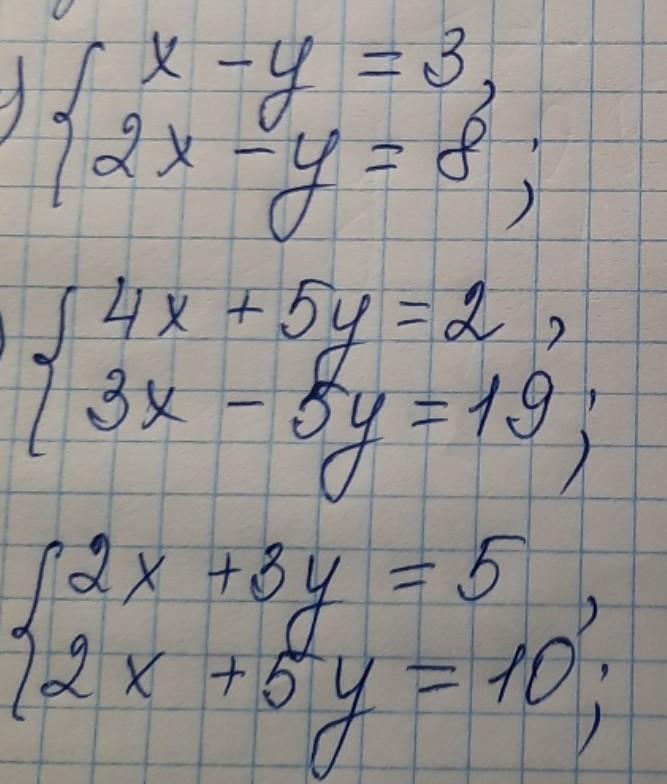 x - y = 3,
2x - y = 8;
4x + 5y = 2,
3x - 5y = 19;
2x + 3y = 5,
2x + 5y = 10;